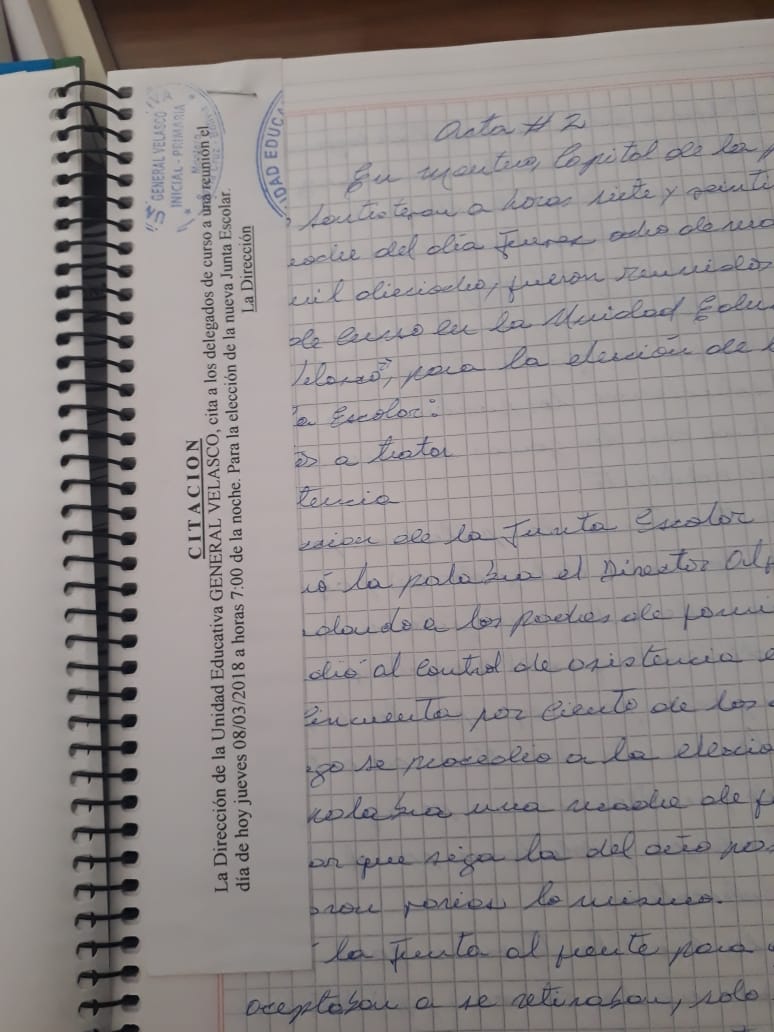 "GENERAL VELASCO"
INICIAL - PRIMARIA
CITACION
La Dirección de la Unidad Educativa GENERAL VELASCO, cita a los delegados de curso a una reunión el
día de hoy jueves 08/03/2018 a horas 7:00 de la noche. Para la elección de la nueva Junta Escolar.
La Dirección
IDAD EDUCA
Acta # 2
En Montero, Capital de la
a horas siete y
noche del día jueves ocho de
mil dieciocho, fueron reunidos
de curso en la Unidad Edu
Velasco", para la elección de
a Escolar:
a tratar
tencia
de la Junta Escolar
la palabra el Director
dando a los padres de fami
dió al control de asistencia
Cincuenta por ciento de los
se procedio a la elecció
palabra una madre de
que siga la del año pas
varios lo mismo.
la Junta al frente para
aceptaban o se retiraban, solo